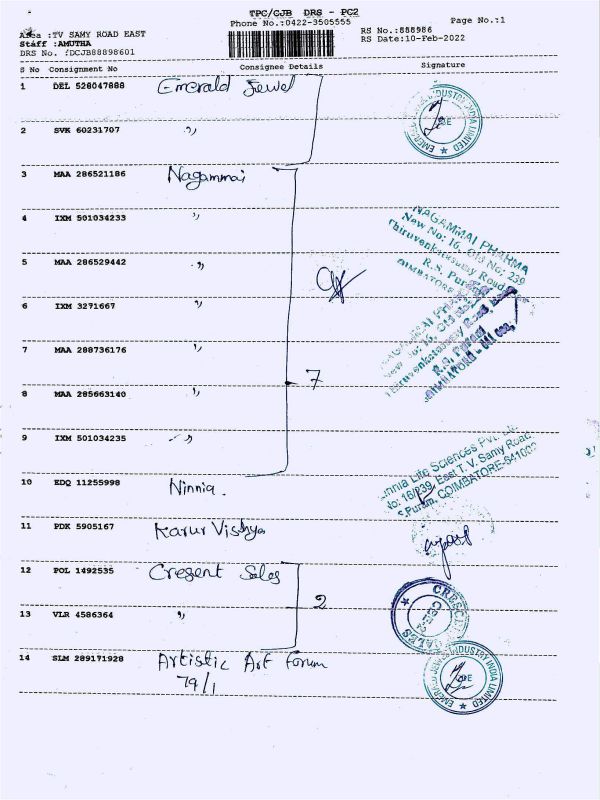 TPC/CJB DRS - PC2
Phone No.:0422-3505555
Page No.:1
Area :TV SAMY ROAD EAST
Staff :AMUTHA
DRS No. :DCJB88898601
RS No.:888986
RS Date:10-Feb-2022
S No Consignment No Consignee Details Signature
1 DEL 528047888 Emerald Jewel
2 SVK 60231707 〃
3 MAA 286521186 Nagammai
4 IXM 501034233 〃
5 MAA 286529442 〃
6 IXM 3271667 〃
7 MAA 288736176 〃
7
8 MAA 285663140 〃
9 IXM 501034235 〃
10 EDQ 11255998 Ninnia.
11 PDK 5905167 Karur Vishya
12 POL 1492535 Cresent Sales
2
13 VLR 4586364 〃
14 SLM 289171928 Artistic Art Forum
79/1
NAGAMMAI PHARMA
New No: 16, Old No: 239
Thiruvenkatasamy Road
R.S. Puram
COIMBATORE
NAGAMMAI PHARMA
New No: 16, Old No: 239
Thiruvenkatasamy Road,
R.S. Puram
COIMBATORE - 641 002,
Ninnia Life Sciences Pvt.
No: 16/239, East T. V. Samy Road
R.S Puram, COIMBATORE-641002
CRESCENT SALES
EMERALD JEWEL INDUSTRY INDIA LIMITED
EMERALD JEWEL INDUSTRY INDIA LIMITED